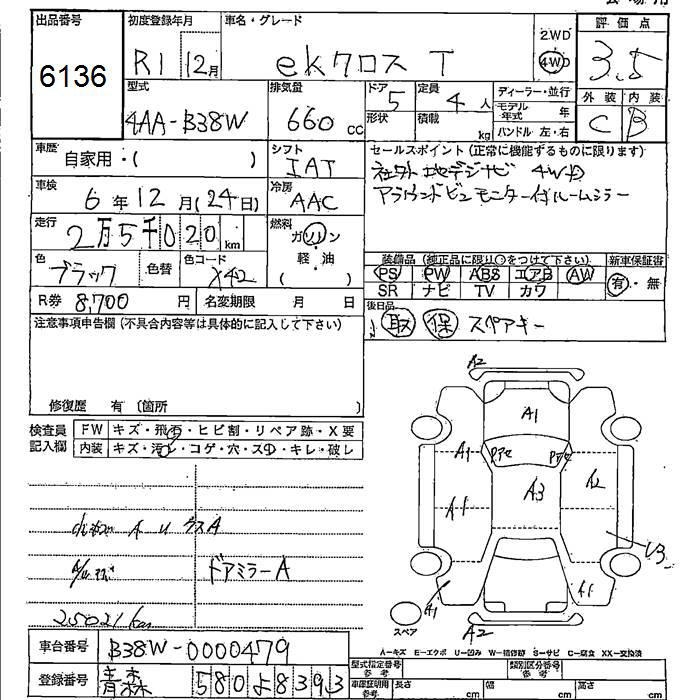 出品番号
6136
初度登録年月
R1 12月
車名・グレード
ekクロス T
2WD
4WD
評価点
3.5
外装 内装
C B
型式
4AA-B38W
排気量
660 cc
ドア 5
形状
定員 4 人
積載 kg
ディーラー・並行
モデル年式 年
ハンドル 左・右
車歴
自家用・( )
シフト
IAT
セールスポイント(正常に機能ずるものに限ります)
社外地デジナビ 4WD
アラウンドビュモニター付ルームミラー
車検
6年12月(24日)
冷房
AAC
走行
2万5千020 km
燃料
ガソリン
軽・油
( )
色
ブラック
色替
色コード
X42
装備品(純正品に限り○をつけて下さい)
PS PW ABS エアB AW
SR ナビ TV カワ
新車保証書
有・無
R券 8,700 円
名変期限 月 日
後日品
取 保 スペアキー
注意事項申告欄(不具合内容等は具体的に記入して下さい)
修復歴 有〔箇所 〕
検査員記入欄
FW キズ・飛石・ヒビ割・リペア跡・X要
内装 キズ・汚レ・コゲ・穴・スレ・キレ・破レ
A U
A
ドアミラーA
25021km
A2
A1
A1
A1
A3
A2
A1
A1
A2
U3
スペア
A-キズ E-エクボ U-凹み W-補修跡 S-サビ C-腐食 XX-交換済
車台番号
B38W-0000479
登録番号
青森 580よ8393
型式指定番号
参考
類別区分番号
参考
車庫証明用
参考
長さ cm
幅 cm
高さ cm